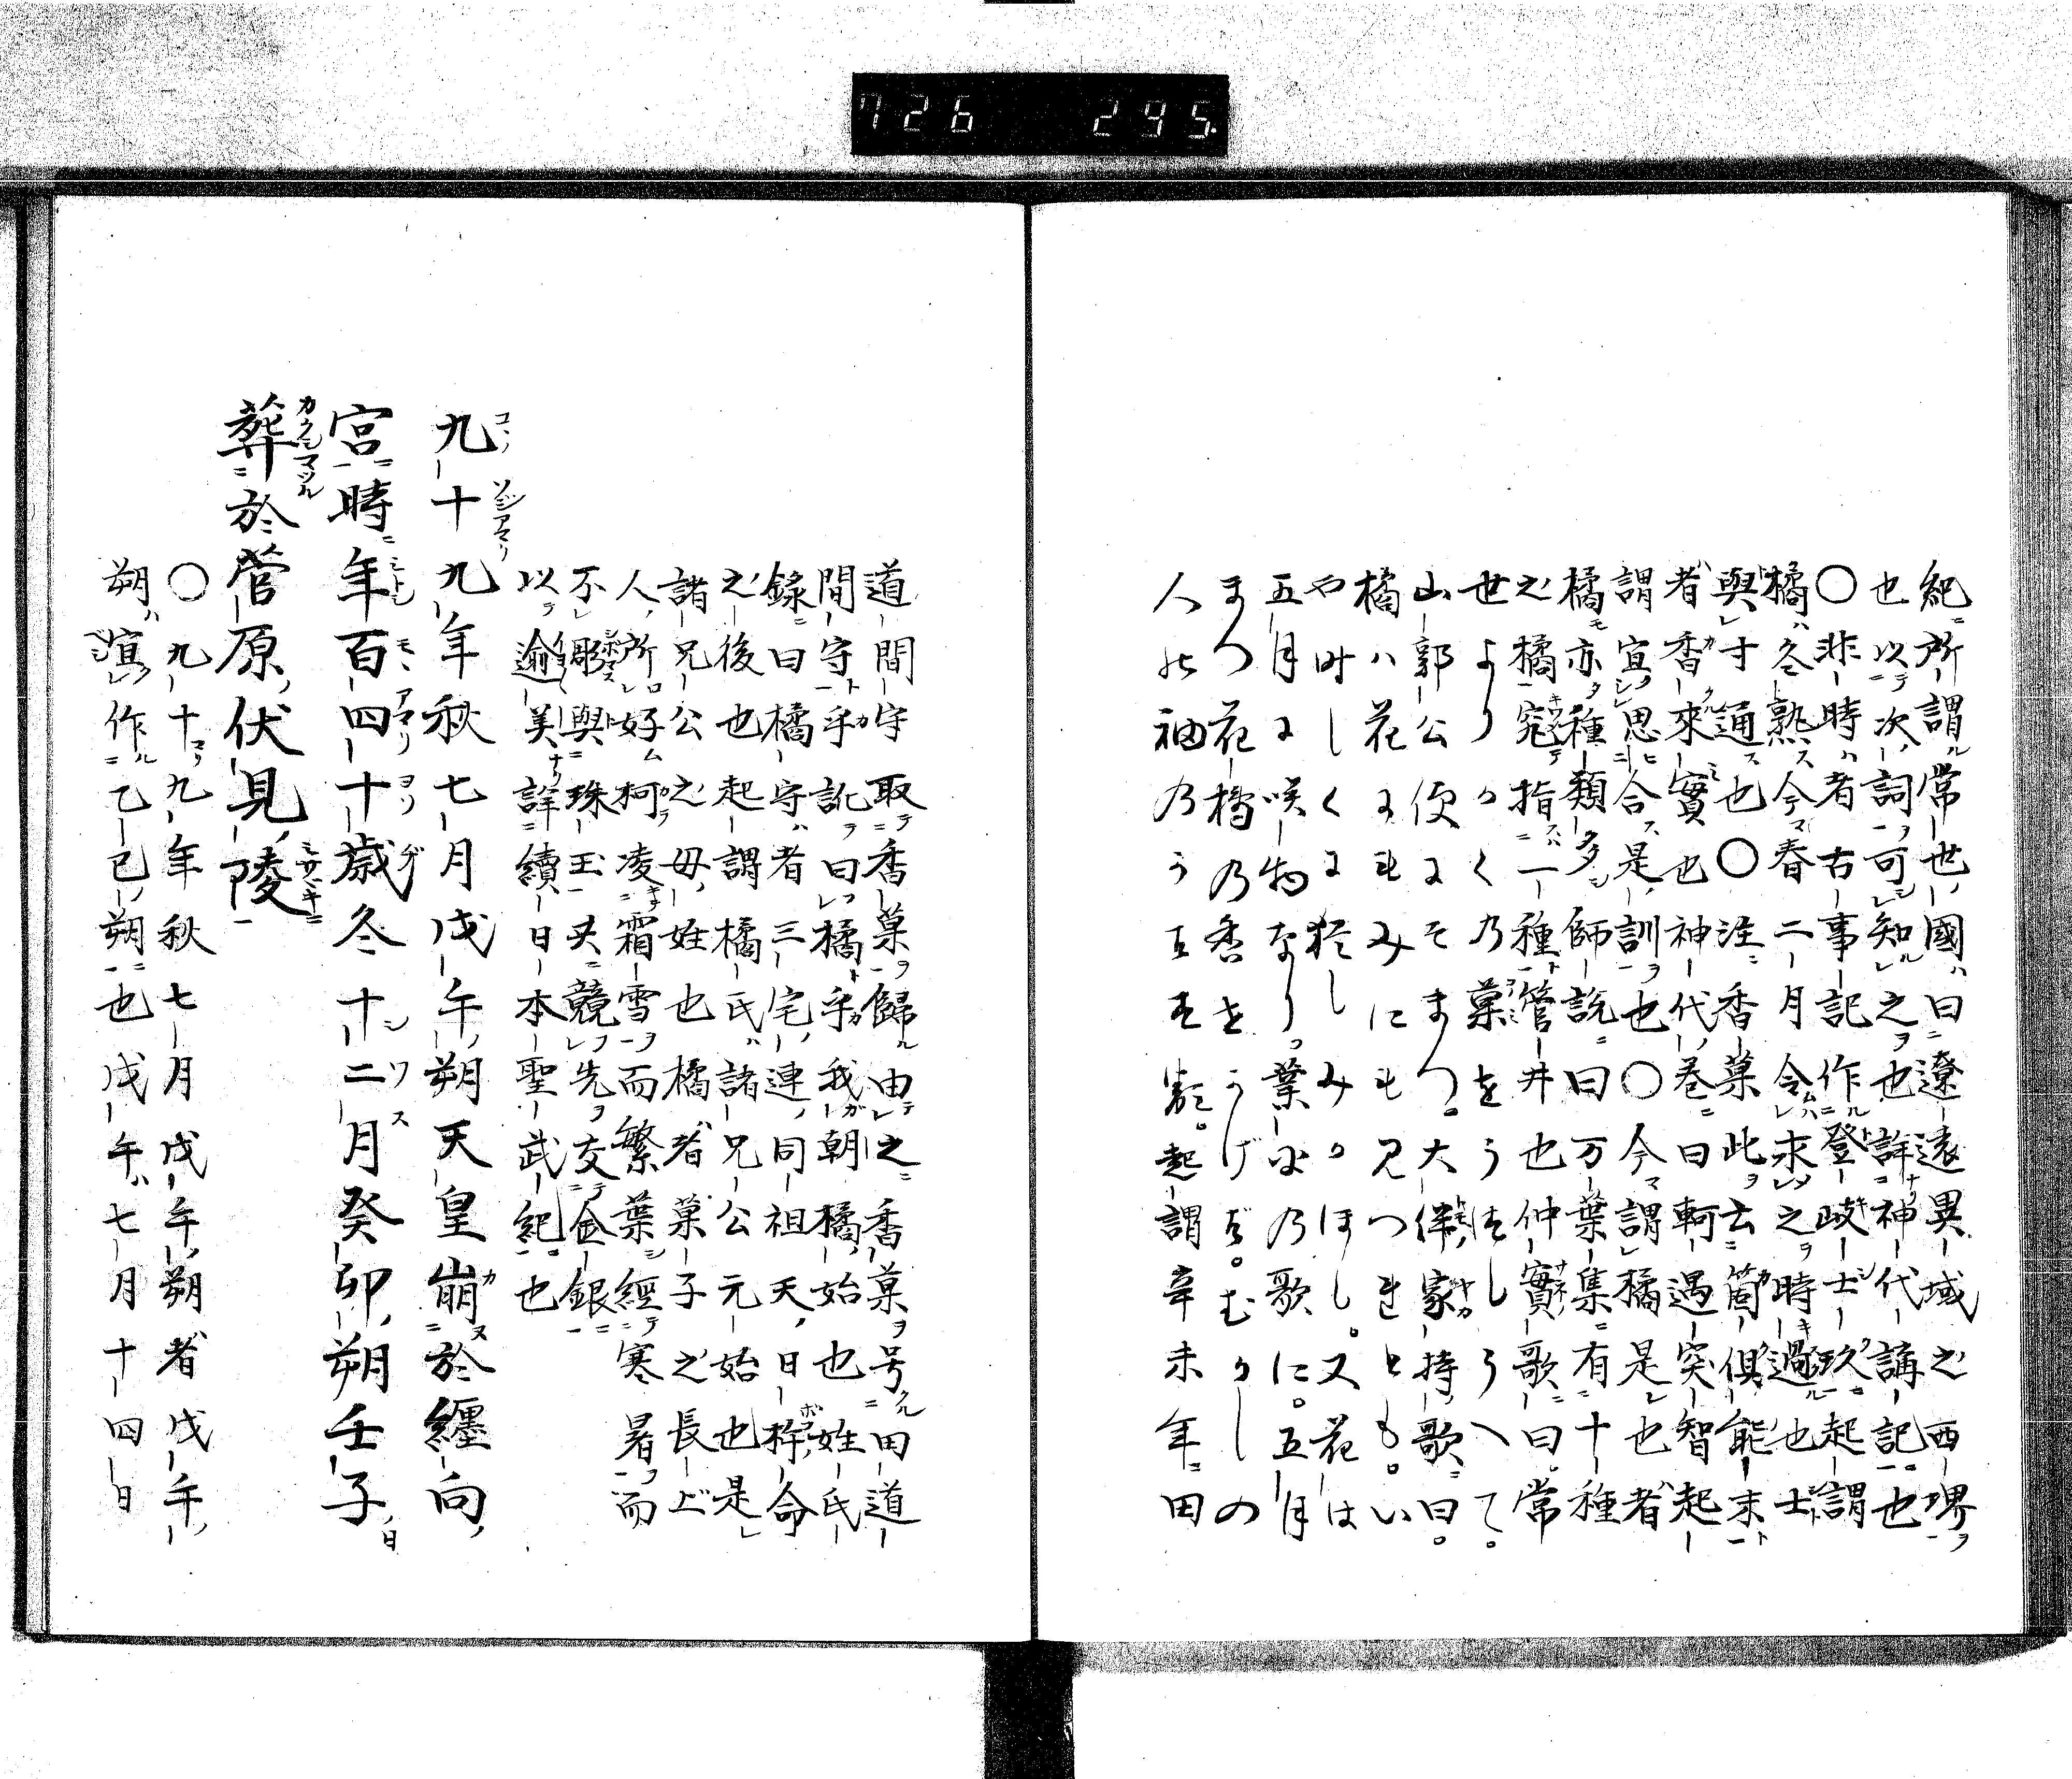 726 295
紀所謂常世國曰遼遠異域之西堺
也以次詞可知之也詳神代講記也
〇非時者古事記作登岐士玖起謂
橘冬熟今春二月令求之時過也士
與寸通也〇注香菓此云箇倶能末
者香來實也神代巻曰軻遇突智起
謂宜思合是訓也〇今謂橘是也者
橘亦種類多師説曰万葉集有十種
之橘究指一種管井也仲實歌曰常
世よりかくの菓をうつしうへて。
山郭公便にそまつ。大伴家持歌曰。
橘ハ花にもみにも見つれとも。い
や時しくに猶しみかほし。又花は
五月に咲物なり。葉に乃歌に。五月
まつ花橘乃香をかげば。むかしの
人の袖乃
起謂辛未年田
道間守取香菓歸由之香菓号田道
間守乎訛曰橘乎我朝橘始也姓氏
錄曰橘守者三宅連同祖天日桙命
之後也起謂橘氏諸兄公元始也是
諸兄公之母姓也橘者菓子之長上
人所好柯凌霜雪而繁葉經寒暑而
不彫與珠玉共競先交金銀
以逾美詳續日本聖武紀也
九十九年秋七月戊午朔天皇崩於纏向
宮時年百四十歲冬十二月癸卯朔壬子日
葬於菅原伏見陵
〇九十九年秋七月戊午朔者戊午
朔冝作乙巳朔也戊午七月十四日